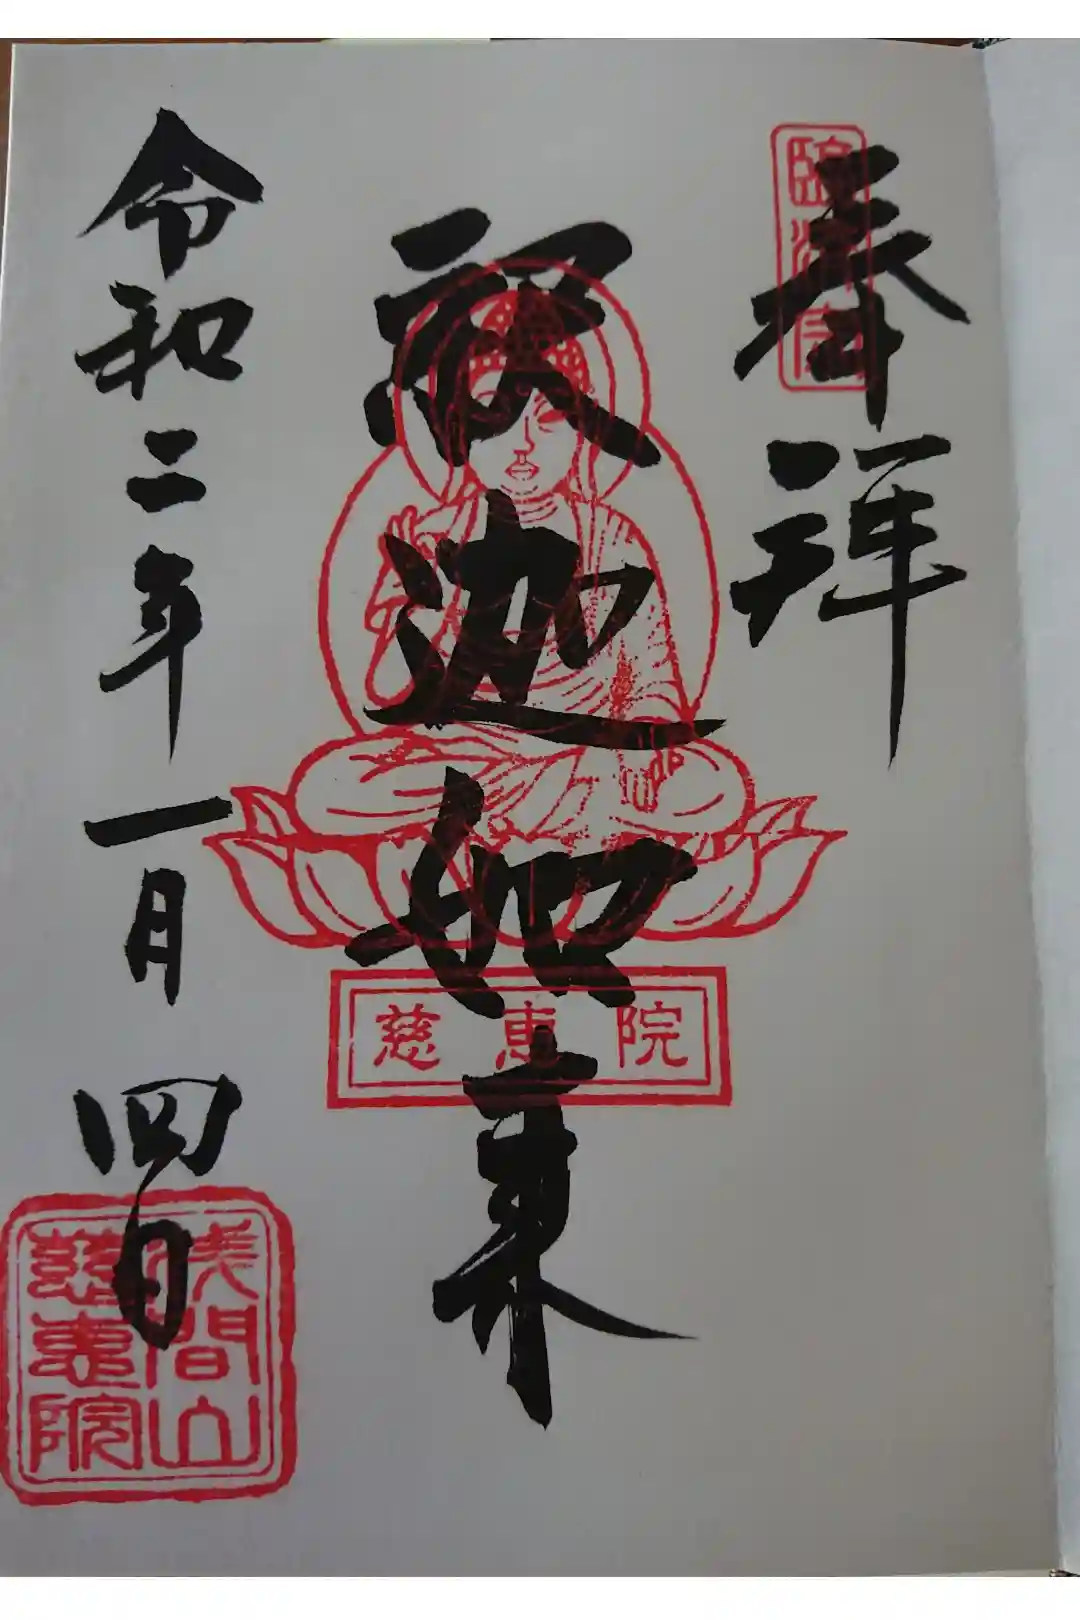 奉拝
釈迦如来
慈恵院
令和二年一月四日
浅間山
慈恵院